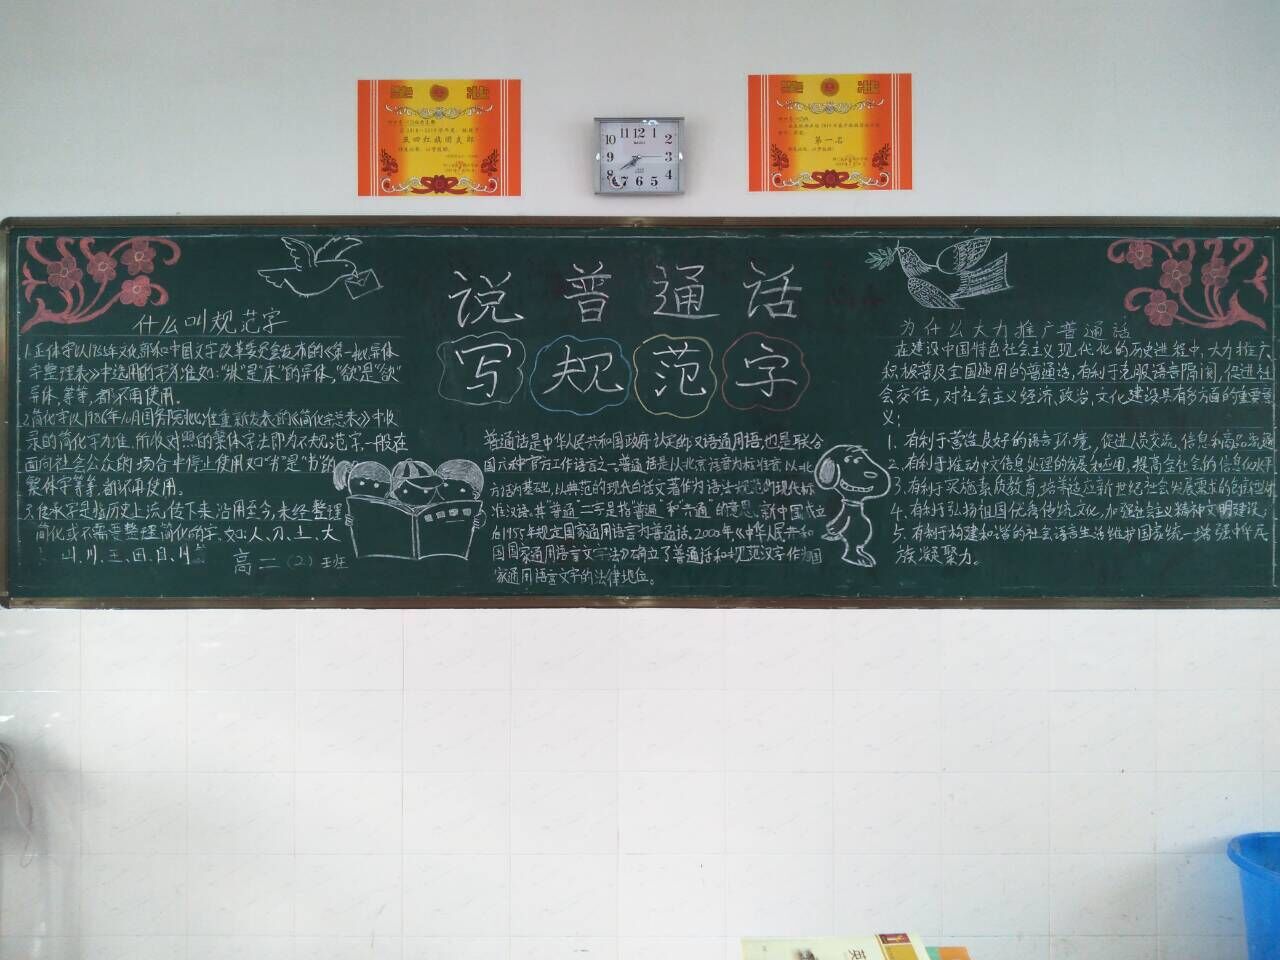 五四红旗团支部
第一名
说普通话
写规范字
什么叫规范字
1.正体字以1955年文化部和中国文字改革委员会发布的《第一批异体
字整理表》中选用的字为准如:"牀"是"床"的异体,"慾"是"欲"
异体,等等,都不再使用。
2.简化字以1986年10月国务院批准重新发表的《简化字总表》中收
录的简化字为准,所收对照的繁体字法即为不规范字,一般在
面向社会公众的场合中停止使用如"書"是"书"的
繁体字等等,都不再使用。
3.传承字是指历史上流传下来沿用至今,未经整理
简化或不需要整理简化的字,如:人、刀、土、大
山、川、王、田、日、
高二(2)班
普通话是中华人民共和国政府认定的汉语通用语,也是联合
国六种官方工作语言之一。普通话是以北京语音为标准音,以北
方话为基础,以典范的现代白话文著作为语法规范的现代标
准汉语,其"普通"二字是指"普遍"和"共通"的意思,新中国成立
后1955年规定国家通用语言为普通话,2000年《中华人民共和
国国家通用语言文字法》确立了普通话和规范汉字作为国
家通用语言文字的法律地位。
为什么大力推广普通话
在建设中国特色社会主义现代化的历史进程中,大力推广、
积极普及全国通用的普通话,有利于克服语言隔阂,促进社
会交往,对社会主义经济,政治,文化建设具有多方面的重要意
义:
1.有利于营造良好的语言环境,促进人员交流,信息和商品流通
2.有利于推动中文信息处理的发展和应用,提高全社会的信息化水平
3.有利于实施素质教育,培养适应新世纪社会发展需求的创新型人才
4.有利于弘扬祖国优秀传统文化,加强社会主义精神文明建设,
5.有利于构建和谐的社会语言生活维护国家统一增强中华民
族凝聚力。
英